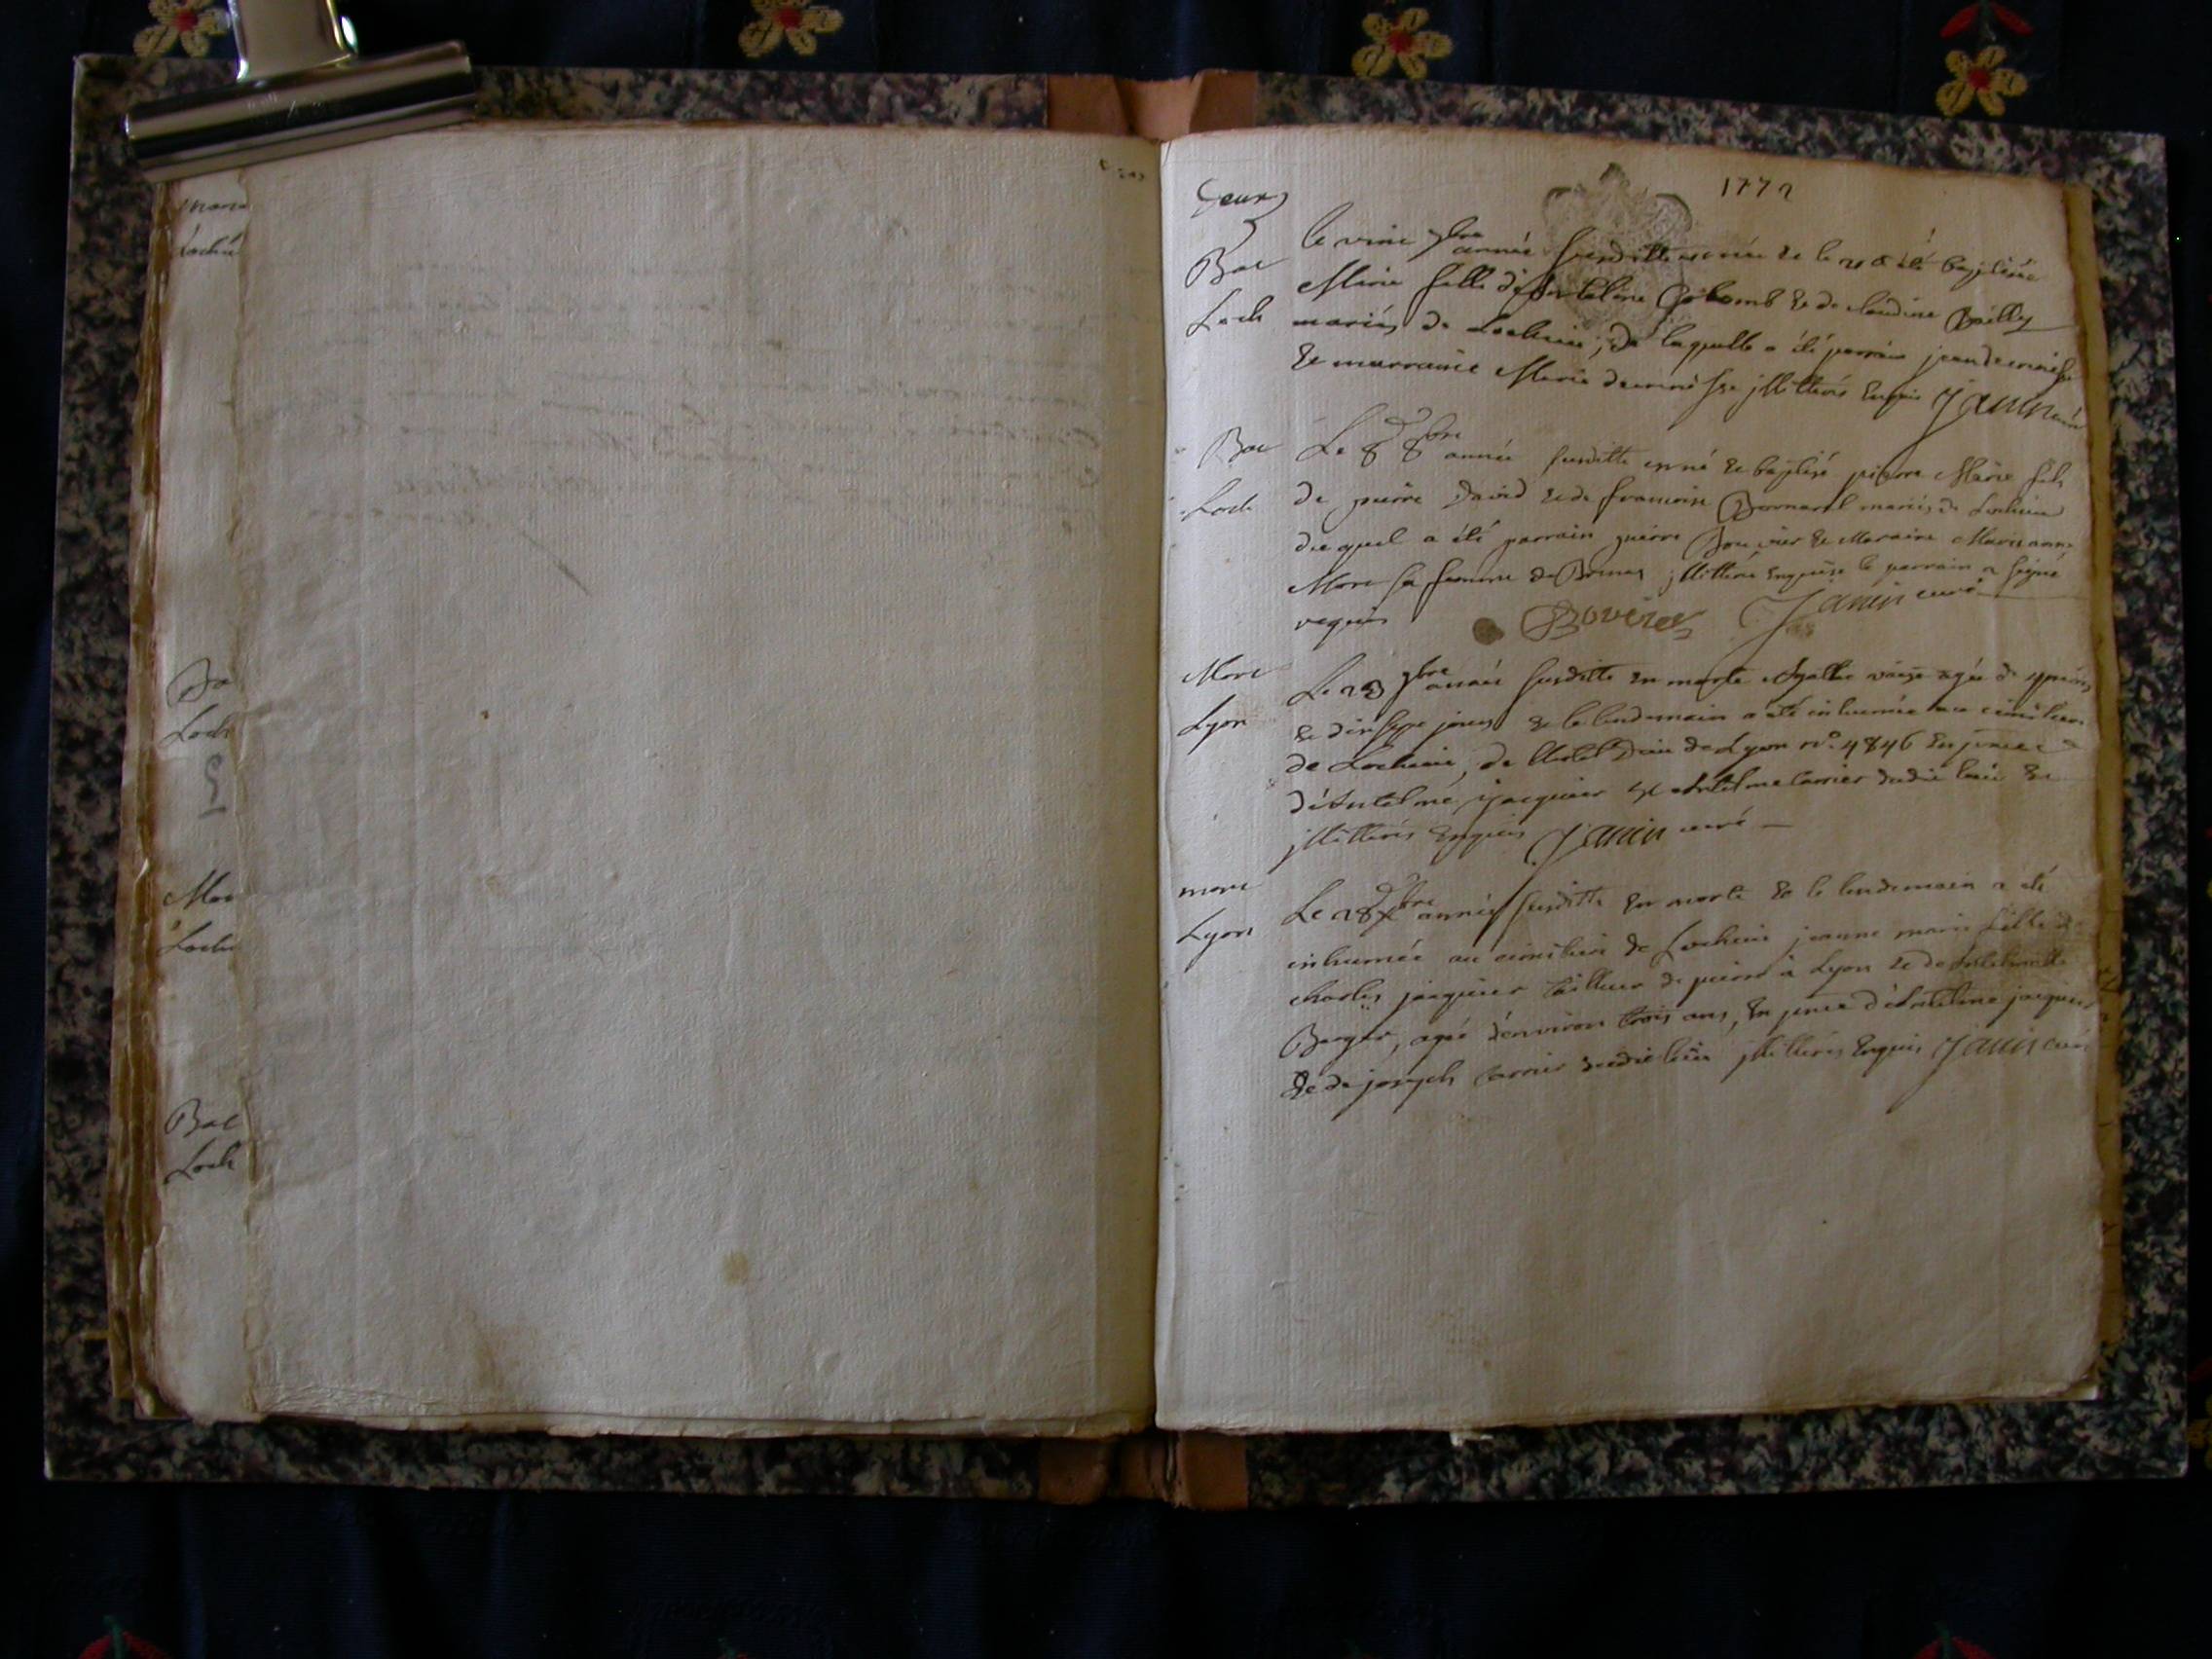 mort
Lochi
Loch
Mor
Loch
Bat
Loch
1772
Bat
Loch
le vint 7bre année susditte est née et le 21 a été baptisée
Marie fille d'Antelme Colomb et de claudine Bailly
mariés de Lochieu, de laquelle a été parrain jean
et marraine Marie illitterés enquis Janin curé
Bat
Loch
Le 8 8bre année susditte est né et baptisé pierre Marie fils
de pierre David et de francoise Bornarel mariés de Lochieu
duquel a été parrain pierre Bouvier et Maraine Marianne
More sa femme de illitterée enquise le parrain a signé
requis Bovier Janin curé
Mort
Lyon
Le 23 9bre année susditte est morte agée de
et dix sept jours et le lendemain a été inhumée au cimetiere
de Lochieu, de l'hotel Dieu de Lyon n°. 4846 en presence
d'Antelme jacquier et Antelme Carrier dudit lieu
illitterés enquis Janin curé
mort
Lyon
Le 28 année susditte est morte et le lendemain a été
inhumée au cimetiere de Lochieu jeanne marie fille de
charles jacquier tailleur de pierre à Lyon et de
Berger, agée d'environ trois ans, en presence d'Antelme jacquier
et de joseph Carrier dudit lieu illitterés enquis Janin curé